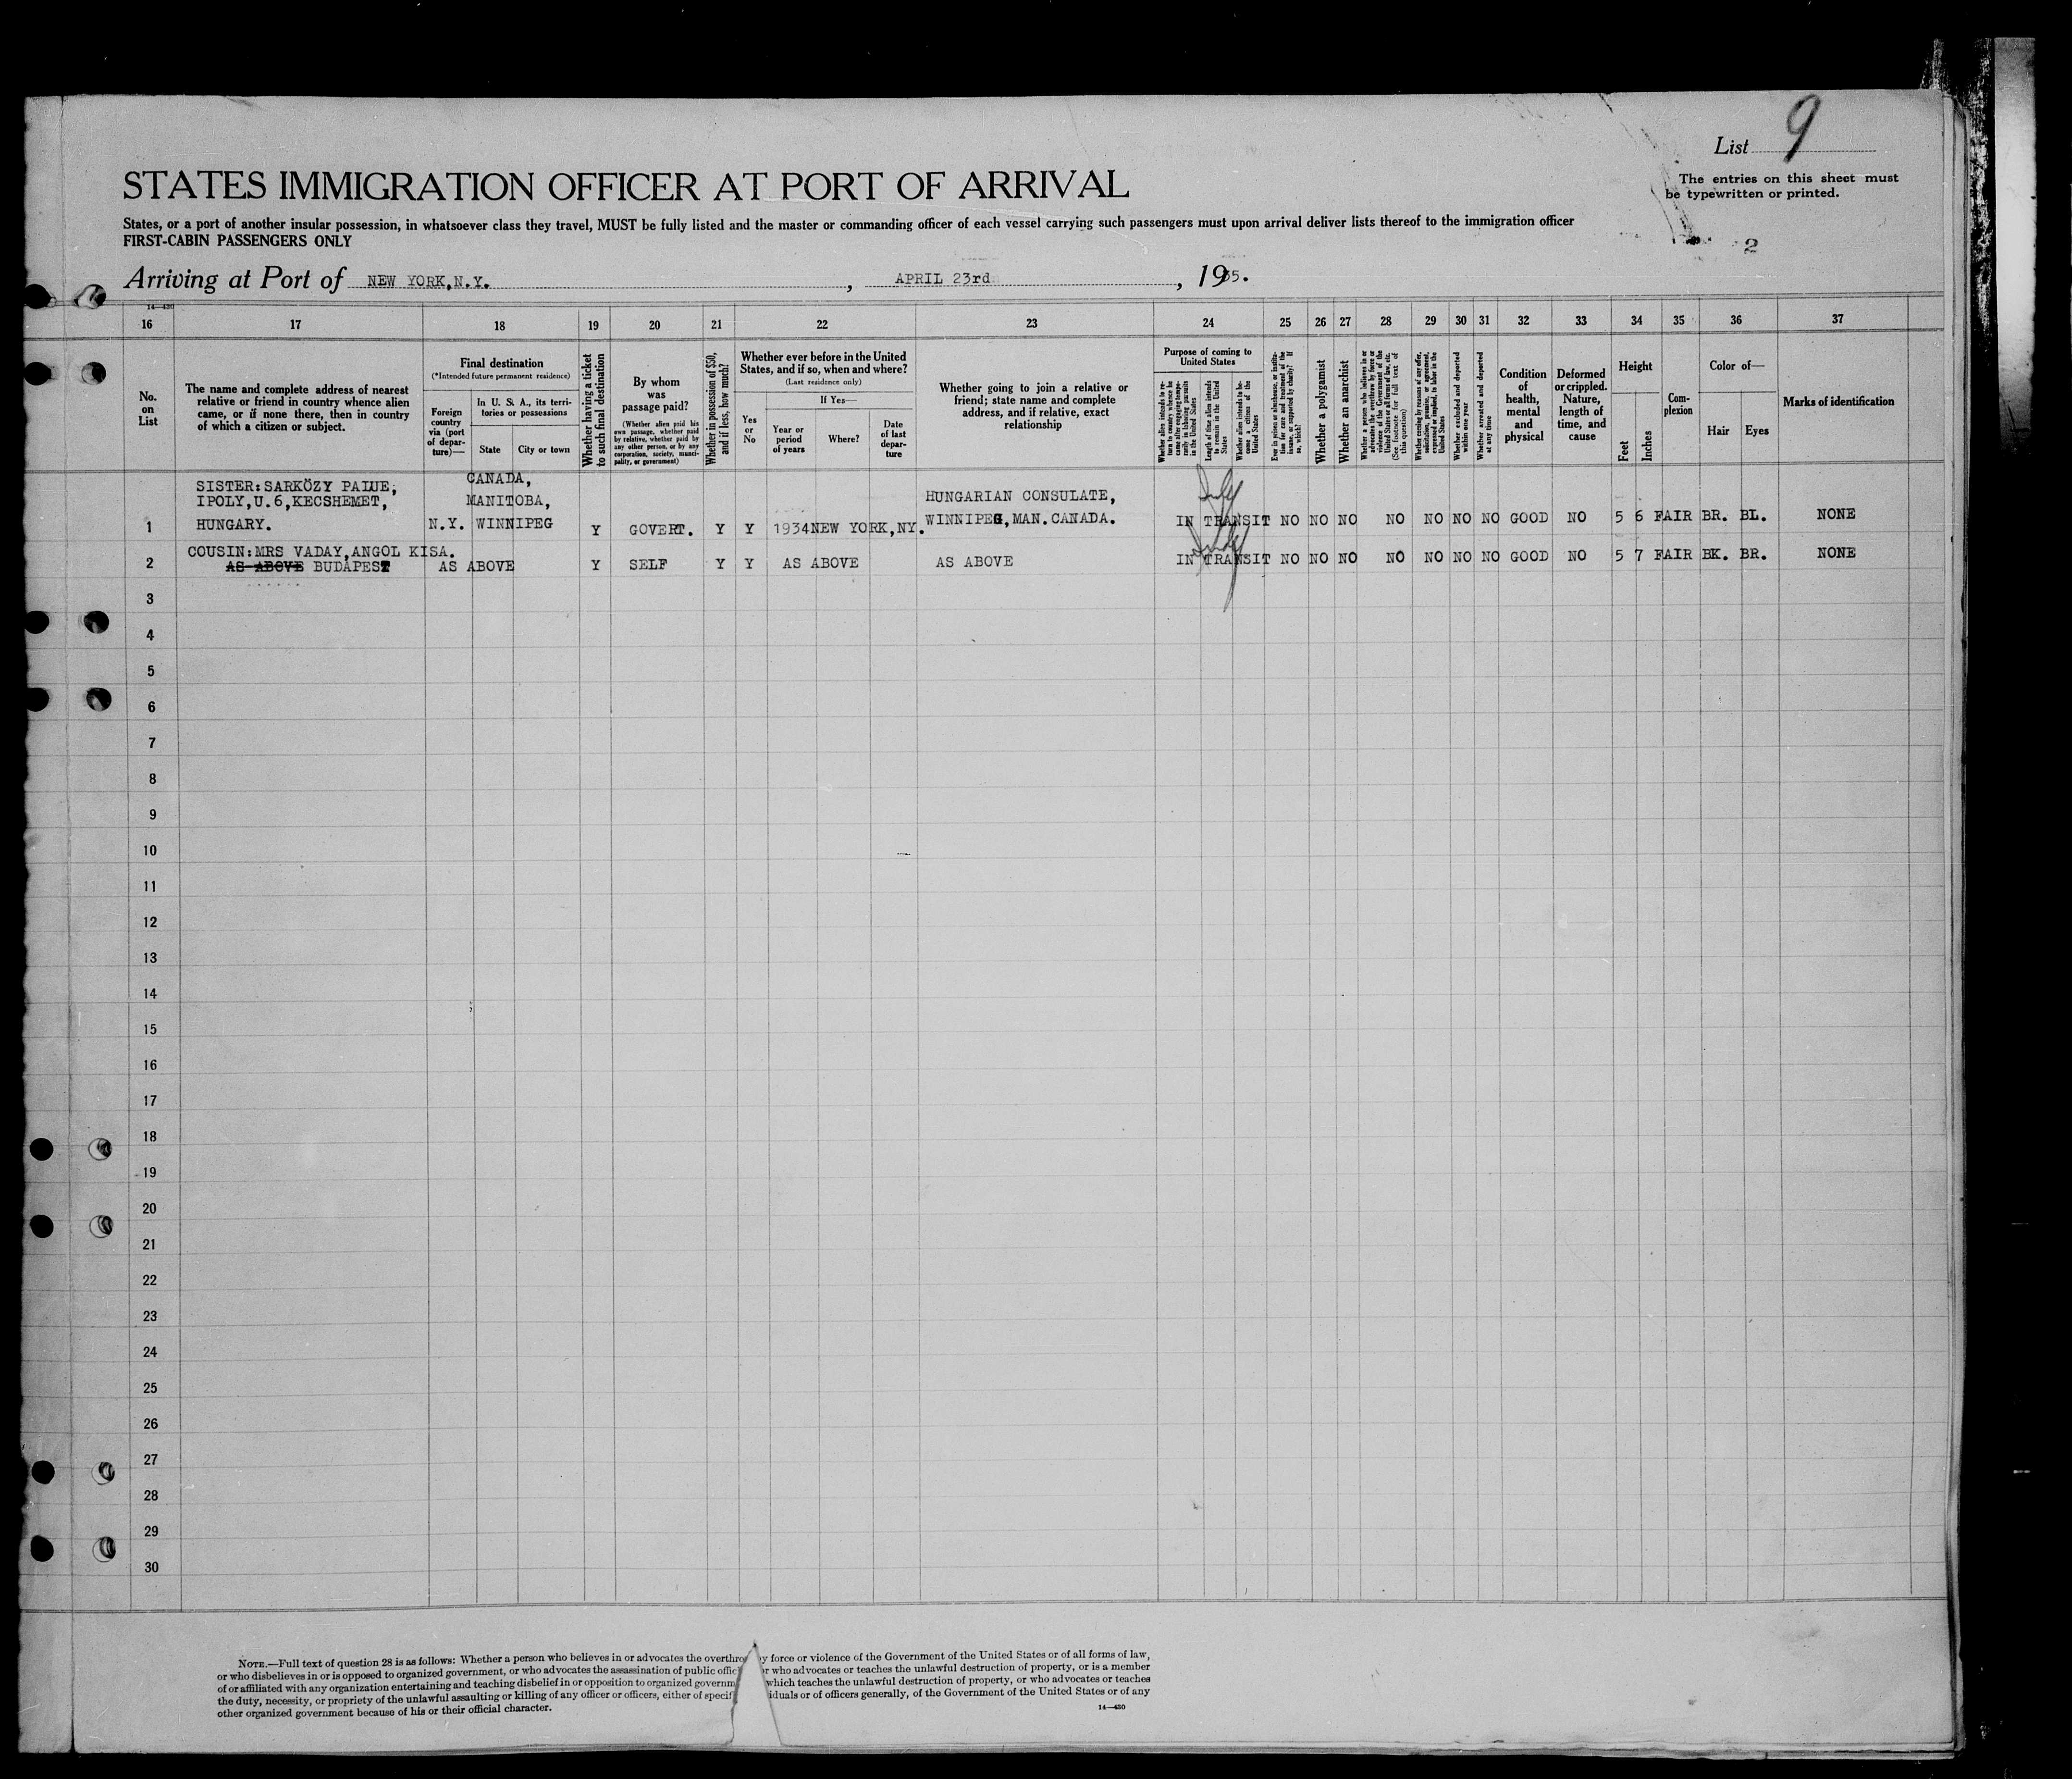 List 9
STATES IMMIGRATION OFFICER AT PORT OF ARRIVAL
The entries on this sheet must
be typewritten or printed.
States, or a port of another insular possession, in whatsoever class they travel, MUST be fully listed and the master or commanding officer of each vessel carrying such passengers must upon arrival deliver lists thereof to the immigration officer
FIRST-CABIN PASSENGERS ONLY
2
Arriving at Port of NEW YORK,N.Y. , APRIL 23rd , 1935.
14—430
16 17 18 19 20 21 22 23 24 25 26 27 28 29 30 31 32 33 34 35 36 37
No.
on
List
The name and complete address of nearest
relative or friend in country whence alien
came, or if none there, then in country
of which a citizen or subject.
Final destination
(*Intended future permanent residence)
Foreign
country
via (port
of depar-
ture)—
In U. S. A., its terri-
tories or possessions
State
City or town
Whether having a ticket
to such final destination
By whom
was
passage paid?
(Whether alien paid his
own passage, whether paid
by relative, whether paid by
any other person, or by any
corporation, society, munici-
pality, or government)
Whether in possession of $50,
and if less, how much?
Whether ever before in the United
States, and if so, when and where?
(Last residence only)
Yes
or
No
If Yes—
Year or
period
of years
Where?
Date
of last
depar-
ture
Whether going to join a relative or
friend; state name and complete
address, and if relative, exact
relationship
Purpose of coming to
United States
Whether alien intends to re-
turn to country whence he
came after engaging tempo-
rarily in laboring pursuits
in the United States
Length of time alien intends
to remain in the United
States
Whether alien intends to be-
come a citizen of the
United States
Ever in prison or almshouse, or institu-
tion for care and treatment of the
insane, or supported by charity? If
so, which?
Whether a polygamist
Whether an anarchist
Whether a person who believes in or
advocates the overthrow by force or
violence of the Government of the
United States or all forms of law, etc.
(See footnote for full text of
this question)
Whether coming by reason of any offer,
solicitation, promise, or agreement,
expressed or implied, to labor in the
United States
Whether excluded and deported
within one year
Whether arrested and deported
at any time
Condition
of
health,
mental
and
physical
Deformed
or crippled.
Nature,
length of
time, and
cause
Height
Feet
Inches
Com-
plexion
Color of—
Hair
Eyes
Marks of identification
SISTER:SARKÖZY PALUE, CANADA,
IPOLY,U.6,KECSHEMET, MANITOBA, HUNGARIAN CONSULATE,
1 HUNGARY. N.Y. WINNIPEG Y GOVERT. Y Y 1934 NEW YORK,NY. WINNIPEG,MAN.CANADA. IN TRANSIT NO NO NO NO NO NO NO GOOD NO 5 6 FAIR BR. BL. NONE
COUSIN:MRS VADAY,ANGOL KISA.
2 AS ABOVE BUDAPEST AS ABOVE Y SELF Y Y AS ABOVE AS ABOVE IN TRANSIT NO NO NO NO NO NO NO GOOD NO 5 7 FAIR BK. BR. NONE
3
4
5
6
7
8
9
10
11
12
13
14
15
16
17
18
19
20
21
22
23
24
25
26
27
28
29
30
NOTE.—Full text of question 28 is as follows: Whether a person who believes in or advocates the overthrow by force or violence of the Government of the United States or of all forms of law,
or who disbelieves in or is opposed to organized government, or who advocates the assassination of public offic or who advocates or teaches the unlawful destruction of property, or is a member
of or affiliated with any organization entertaining and teaching disbelief in or opposition to organized governm which teaches the unlawful destruction of property, or who advocates or teaches
the duty, necessity, or propriety of the unlawful assaulting or killing of any officer or officers, either of specif iduals or of officers generally, of the Government of the United States or of any
other organized government because of his or their official character.
14—430